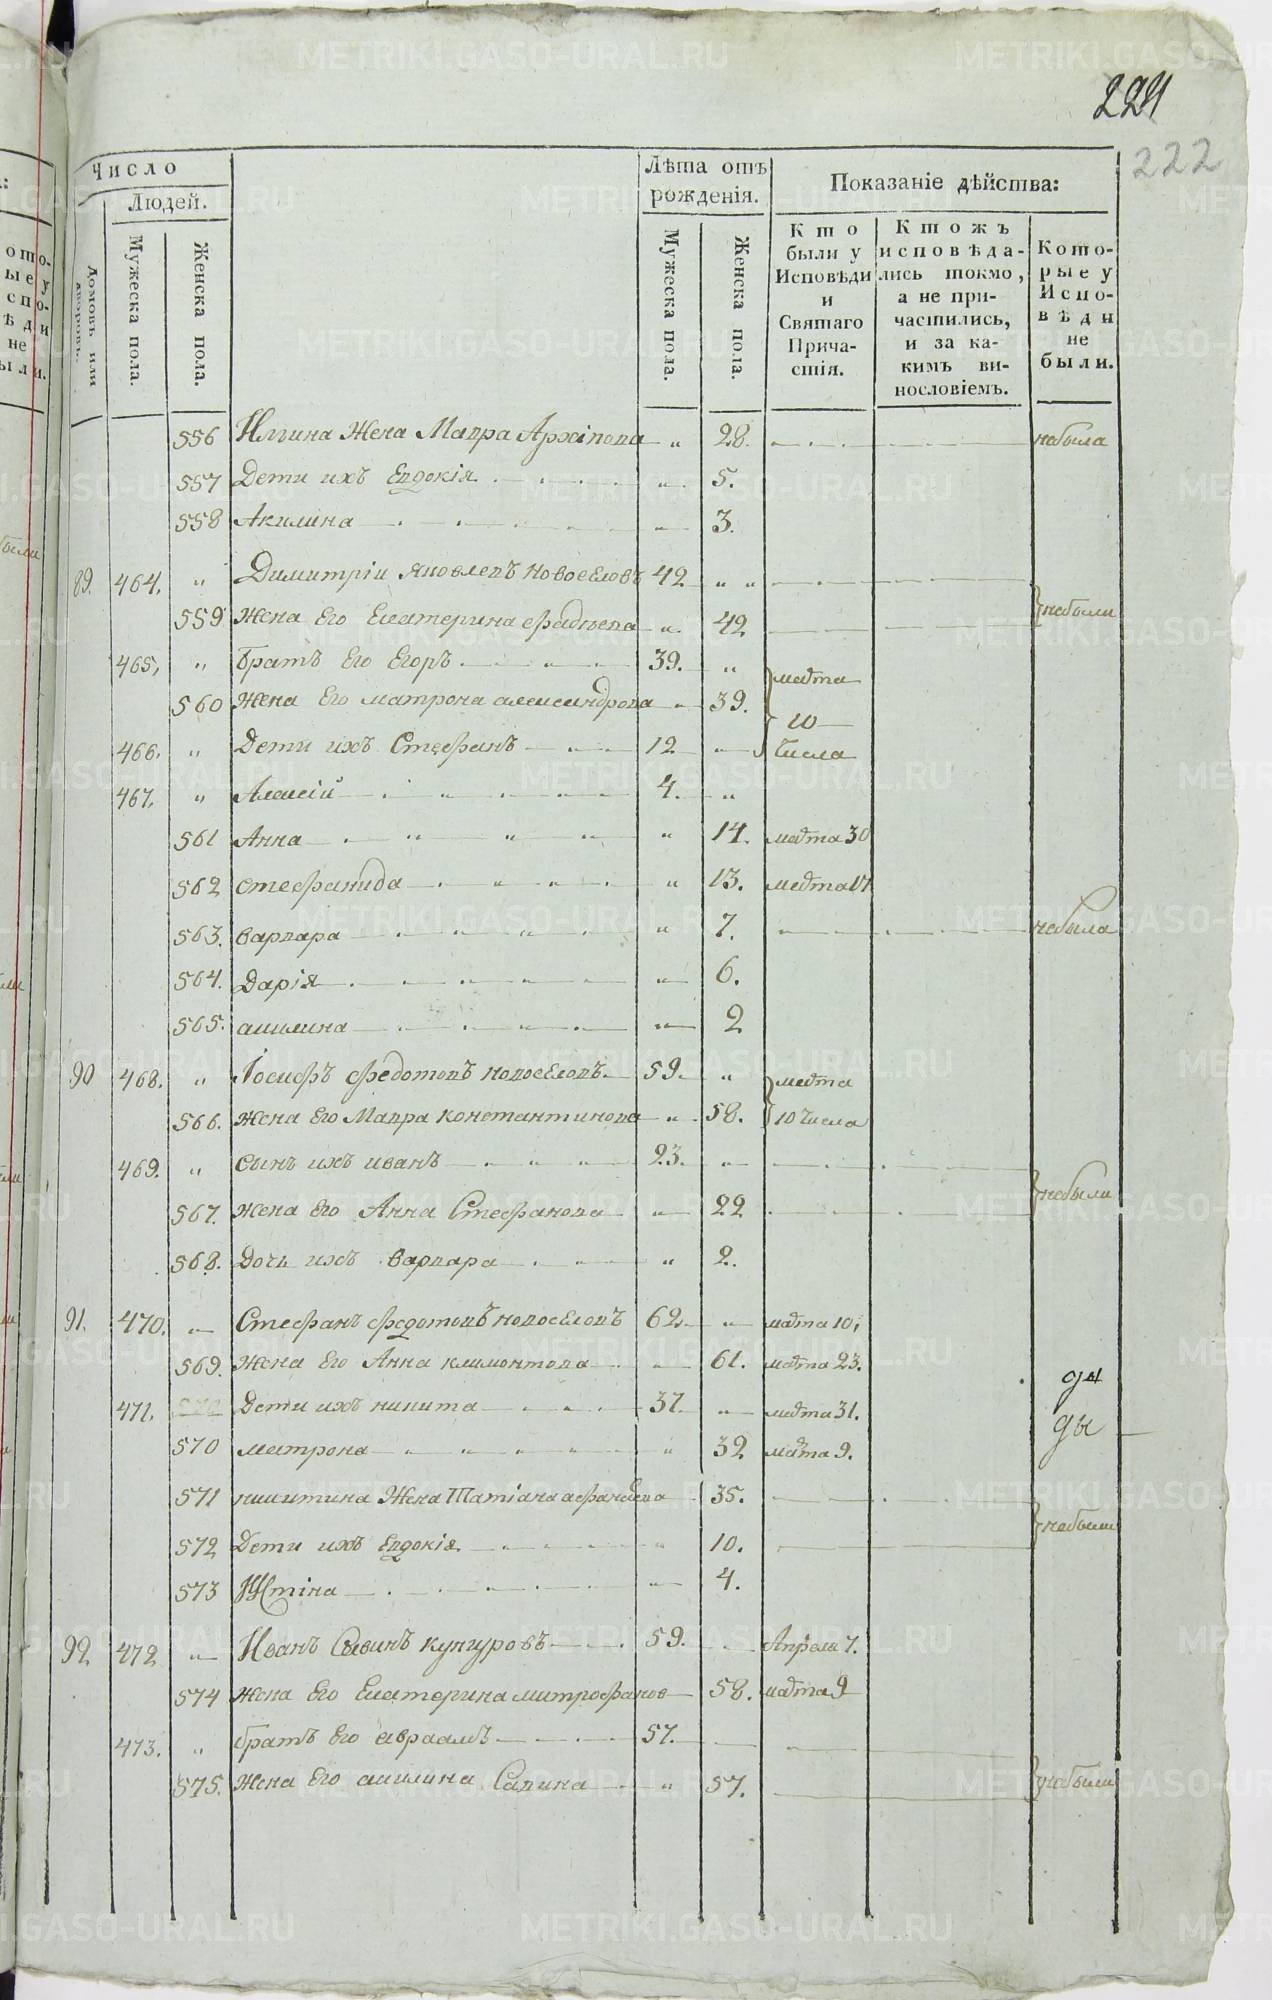 224
222
Число
Людей.
Домовъ или дворовъ.
Мужеска пола.
Женска пола.
Лѣта отъ рожденія.
Мужеска пола.
Женска пола.
Показаніе дѣйства:
Кто были у Исповѣди и Святаго Причастія.
Ктожъ исповѣдались токмо, а не причастились, и за какимъ винословіемъ.
Которые у Исповѣди не были.
556 Жена Мавра Архипова " 28. небыла
557 Дети ихъ Евдокія " 5.
558 Акилина " 3.
89. 464. " Димитріи Яковлевъ Новоселовъ 42 " "
559 Жена Его Екатерина Фадѣева " 42 небыли
465, " братъ Его Егоръ 39. " марта
560 Жена Его матрона александрова " 39. 10
466. " Дети ихъ Стефанъ 12 " числа
467. " Алексій 4. "
561 Анна " 14. марта 30
562 стефанида " 13. марта 17
563. варвара " 7. небыла
564. Дарія " 6.
565. акилина " 2
90 468. " Іосифъ Федотовъ новоселовъ 59. " марта
566. Жена Его Мавра константинова " 58. 10 числа
469. " сынъ ихъ иванъ 23. "
567. Жена Его Анна Стефанова " 22 небыли
568. Дочь ихъ варвара " 2.
91. 470. " Стефанъ федотовъ новоселовъ 62. " марта 10.
569. Жена Его Анна климонтова " 61. марта 23.
471. Дети ихъ никита 37. " марта 31.
570 матрона " 32 марта 9.
571 никитина Жена Татіана 35.
572 Дети ихъ Евдокія " 10. небыли
573 Устіна " 4.
92 472 " Иванъ Савинъ кунгуровъ 59. Апреля 7.
574 Жена Его Екатерина митрофанов 58. марта 9
473. " братъ Его авраамъ 57.
575. Жена Его акилина Савина " 57. небыли
METRIKI.GASO-URAL.RU